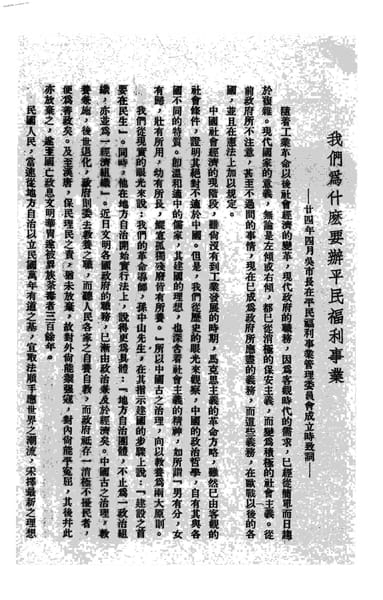 我們爲什麽要辦平民福利事業
——廿四年四月吳市長在平民福利事業管理委員會成立時致詞——
隨着工業革命以後社會經濟的變革，現代政府的職務，因爲客觀時代的需求，已經從簡單而日趨
於複雜。現代國家的意義，無論是左傾或右傾，都已從消極的保安主義，而變爲積極的社會主義。從
前政府所不注意，甚至不過問的事情，現在已成爲政府所應盡的義務，這種義務，在歐戰以後的各
國，並且在憲法上加以規定。
中國社會經濟的現階段，雖尚沒有到工業發展的時期，馬克思主義的革命方略，雖然已由客觀的
社會條件，證明其絕對不適於中國。但是，我們從歷史的眼光來觀察，中國的政治哲學，自有其與各
國不同的特質。卽溫和適中的儒家，其建國的理想，也深含着社會主義的精神，如所謂『男有分，女
有歸，壯有所用，幼有所長，鰥寡孤獨殘廢皆有所養。』所以中國古之治理，向以教養爲兩大原則。
我們從現實的眼光來說：我們的革命導師，孫中山先生，在其指示建國的步驟上說：『建設之首
要在民生』。同時，他在地方自治開始實行法上，說得更爲具體：『地方自治團體，不止爲一政治組
織，亦並爲一經濟組織』。近日文明各國政府的職務，已漸由政治兼及於經濟矣。中國古之治理，教
養兼施，後世退化，政府則委去教養之職，而聽人民各家之自養自教，而政府祗存一消極不擾民者，
便爲善政矣。及至漢唐，保民理民之責，猶未放棄，故對外尚能禦強寇，對內尚能平冤屈，其後并此
亦放棄之，遂至國亡政息，文明華冑遂被異族荼毒者三百餘年。
民國人民，當速從地方自治以立民國萬年有道之基，宜取法順手應世界之潮流，采擇最新之理想